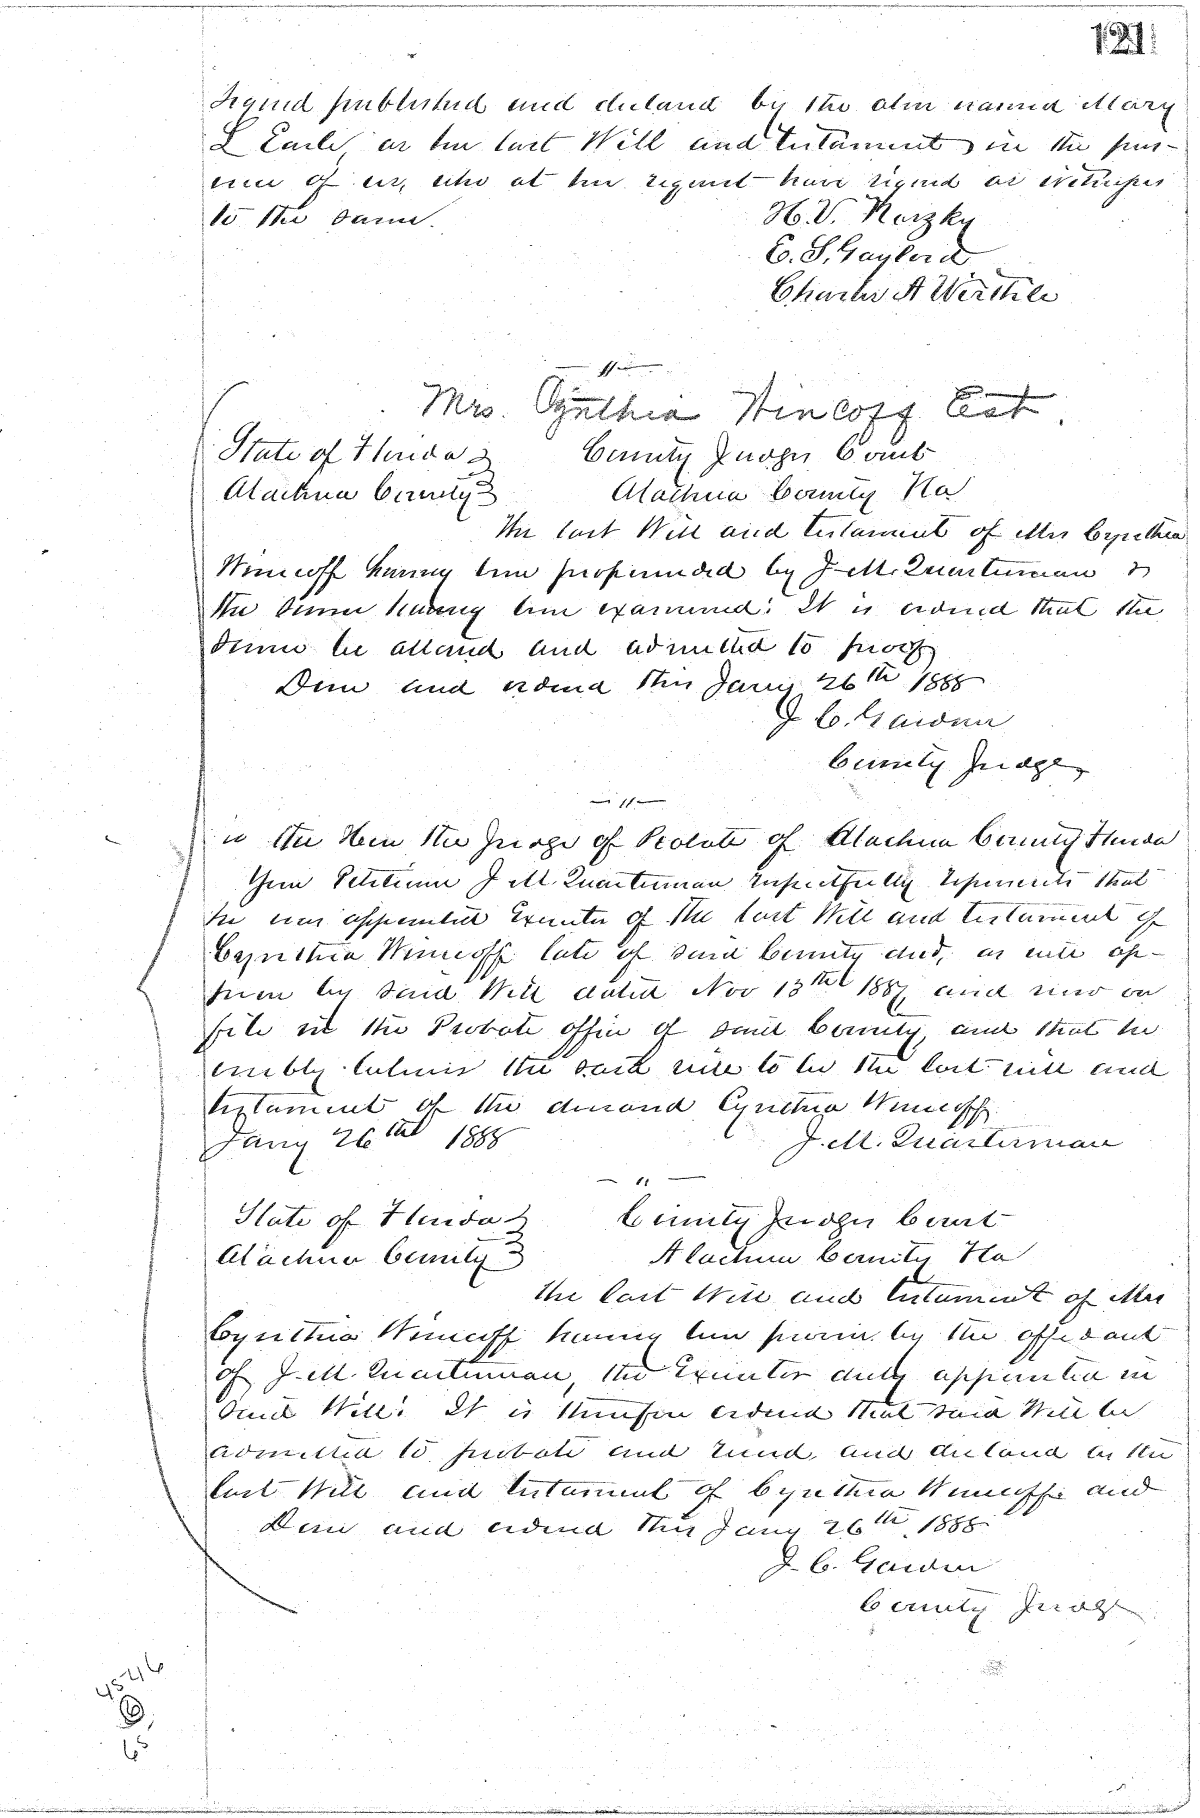 121
Signed published and declared by the above named Mary
L Earle, as her last Will and testament, in the pres-
ence of us, who at her request have signed as witnesses
to the same.
H. V.
E. S. Gaylord
Charles A
Mrs. Cynthia Wincoff Est.
State of Florida
County Judges Court
Alachua County
Alachua County Fla
The last Will and testament of Mrs Cynthia
Wincoff having been propounded by J. M. Quarterman &
the same having been examined: It is ordered that the
same be allowed and admitted to proof
Done and ordered this Jany 26th 1888
J C. Gardner
County Judge
"
To the Hon the Judge of Probate of Alachua County Florida
Your Petitioner J M. Quarterman respectfully represents that
he was appointed Executor of the last Will and testament of
Cynthia Wincoff late of said County decd, as will ap-
pear by said Will dated Nov 13th 1887, and now on
file in the Probate office of said County, and that he
verably believes the said will to be the last will and
testament of the deceased Cynthia Wincoff.
Jany 26th 1888
J. M. Quarterman
"
State of Florida
County Judges Court
Alachua County
Alachua County Fla
The last Will and testament of Mrs
Cynthia Wincoff having been proven by the affidavit
of J. M. Quarterman, the Executor duly appointed in
said Will: It is therefore ordered that said Will be
admitted to probate and record, and declared as the
last Will and testament of Cynthia Wincoff and
Done and ordered this Jany 26th 1888
J. C. Gardner
County Judge
4546
65